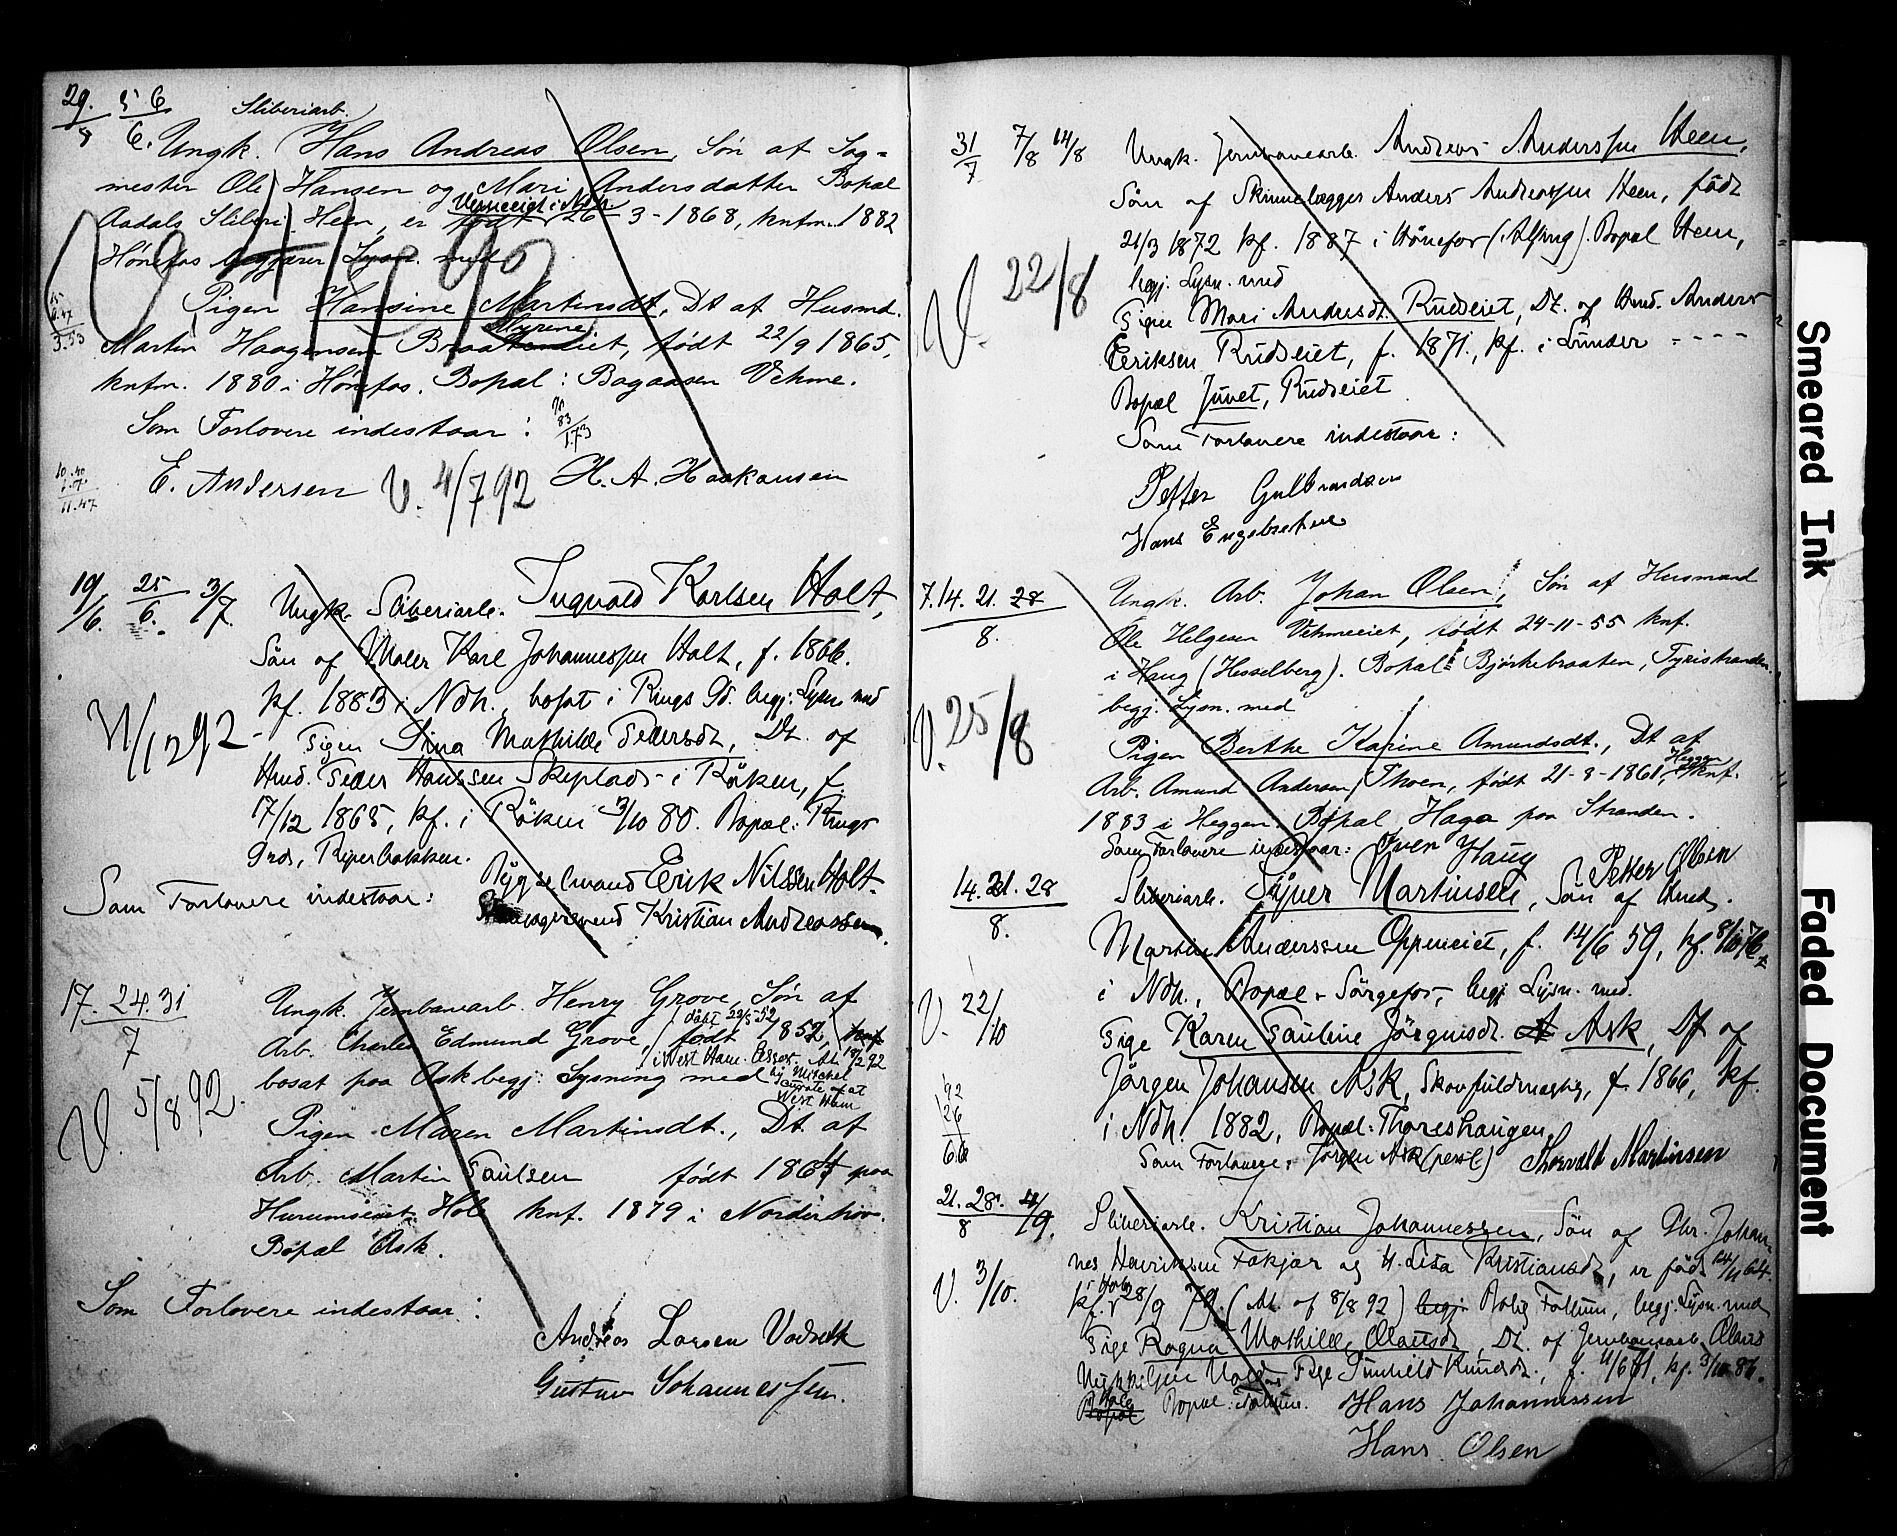 29. 5 6
8 6. Sliberiarb.
Ungk. Hans Andreas Olsen, Søn af Sag-
mester Ole Hansen og Mari Andersdatter Bopæl
Verneeiet i Ndh.
Aadals Sliberi Heen, er født 26-3-1868, knfm. 1882
Hønefos begjærer Lysn. med
Pigen Hansine Martinsdt, Dt af Husmd.
Myrene
Martin Haagensen Braateneiet, født 22/9 1865,
knfm. 1880 i Hønefos. Bopæl: Bagaasen Vehme.
Som Forlovere indestaar:
E. Andersen V. 4/7 92 H. A. Haakansen
19/6. 25/6. 3/7. Ungk. Sliberiarb. Ingvald Karlsen Holt,
Søn af Maler Karl Johannessen Holt, f. 1866.
kf. 1883 i Ndh., bosat i Rings Gd. begj: Lysn. med
Pigen Lina Mathilde Pedersdt, Dt. af
Hmd. Peder Hanssen Skeplads i Røken, f.
17/12 1865, kf. i Røken 3/10 80. Bopæl: Rings
Grds, Riperbakken.
Som Forlovere indestaar: Erik Nilssen Holt.
Kristian Andreassen.
17. 24. 31
7
Ungk. Jernbanearb. Henry Grove, Søn af
døbt 22/5-52
Arb. Charles Edmund Grove, født 1852, knf
i West Ham. Essex. At. 14/2 92
bosat paa Ask begj: Lysning med
by Mitchel
curate of at
West Ham
V. 5/8 92.
Pigen Maren Martinsdt., Dt. af
Arb. Martin Paulsen født 1864 paa
Hurumseiet Hole knf. 1879 i Norderhov.
Bopæl Ask.
Som Forlovere indestaar:
Andreas Larsen
Gustav Johannessen.
31/7 7/8 14/8 Ungk. Jernbanearb. Andreas Anderssen Heen,
Søn af Skinnelægger Anders Andreassen Heen, født
21/3 1872 kf. 1887 i Hønefos (Alfing). Bopæl Heen,
begj. Lysn. med
V. 22/8
Pigen Mari Andersdt. Rudseiet, Dt. af Hmd. Anders
Eeriksen Rudseiet, f. 1871, kf. i Lunder - - - -
Bopæl Juvet, Rudseiet
Som Forlovere indestaar:
Petter Gulbrandsen
Hans Engebretsen
7. 14. 21. 28
8.
Ungk. Arb. Johan Olsen, Søn af Husmand
Ole Helgesen Vehmeeiet, født 24-11-55 knf.
i Haug (Hesselberg). Bopæl: Bjørkebraaten, Tyristranden.
begj. Lysn. med
V. 25/8
Pigen Berthe Karine Amundsdt., Dt af
Arb. Amund Andersen Thoen, født 21-8-1861, Heggen knf.
1883 i Heggen. Bopæl Haga paa Stranden.
Som Forlovere indestaar: Iver Haug
Petter Olsen
14. 21. 28
8.
Sliberiarb. Martinsen, Søn af Hmd.
Martin Anderssen Oppeneiet, f. 14/6 59, kf.
i Ndh., Bopæl - Sørgefos, begj Lysn. med.
V. 22/10
Pige Karen Pauline Jörgensdt. Ask, Dt af
Jörgen Johansen Ask, Skovfuldmægtig, f. 1866, kf.
i Ndh. 1882, Bopæl: Thoreshaugen
Som Forlovere: Jørgen Ask (persl) Thorvald Martinsen
21. 28. 4/9.
8
Sliberiarb. Kristian Johannessen, Søn af Gbr. Johan-
nes Henriksen Fokjær og H. Lisa Kristiansdt, er født
V. 3/10.
kf. i Hole 28/9 79. (At. af 8/8 92) begj. Bolig Follum, begj. Lysn. med
Pige Ragna Mathilde Olausdt, Dt. af Jernbanearb. Olaus
Pige Gunhild Knudsdt., f. 11/6 71, kf. 3/10 86.
Hole Bopæl. Bopæl: Follum. Hans Johannessen
Hans Olsen
Smeared Ink
Faded Document